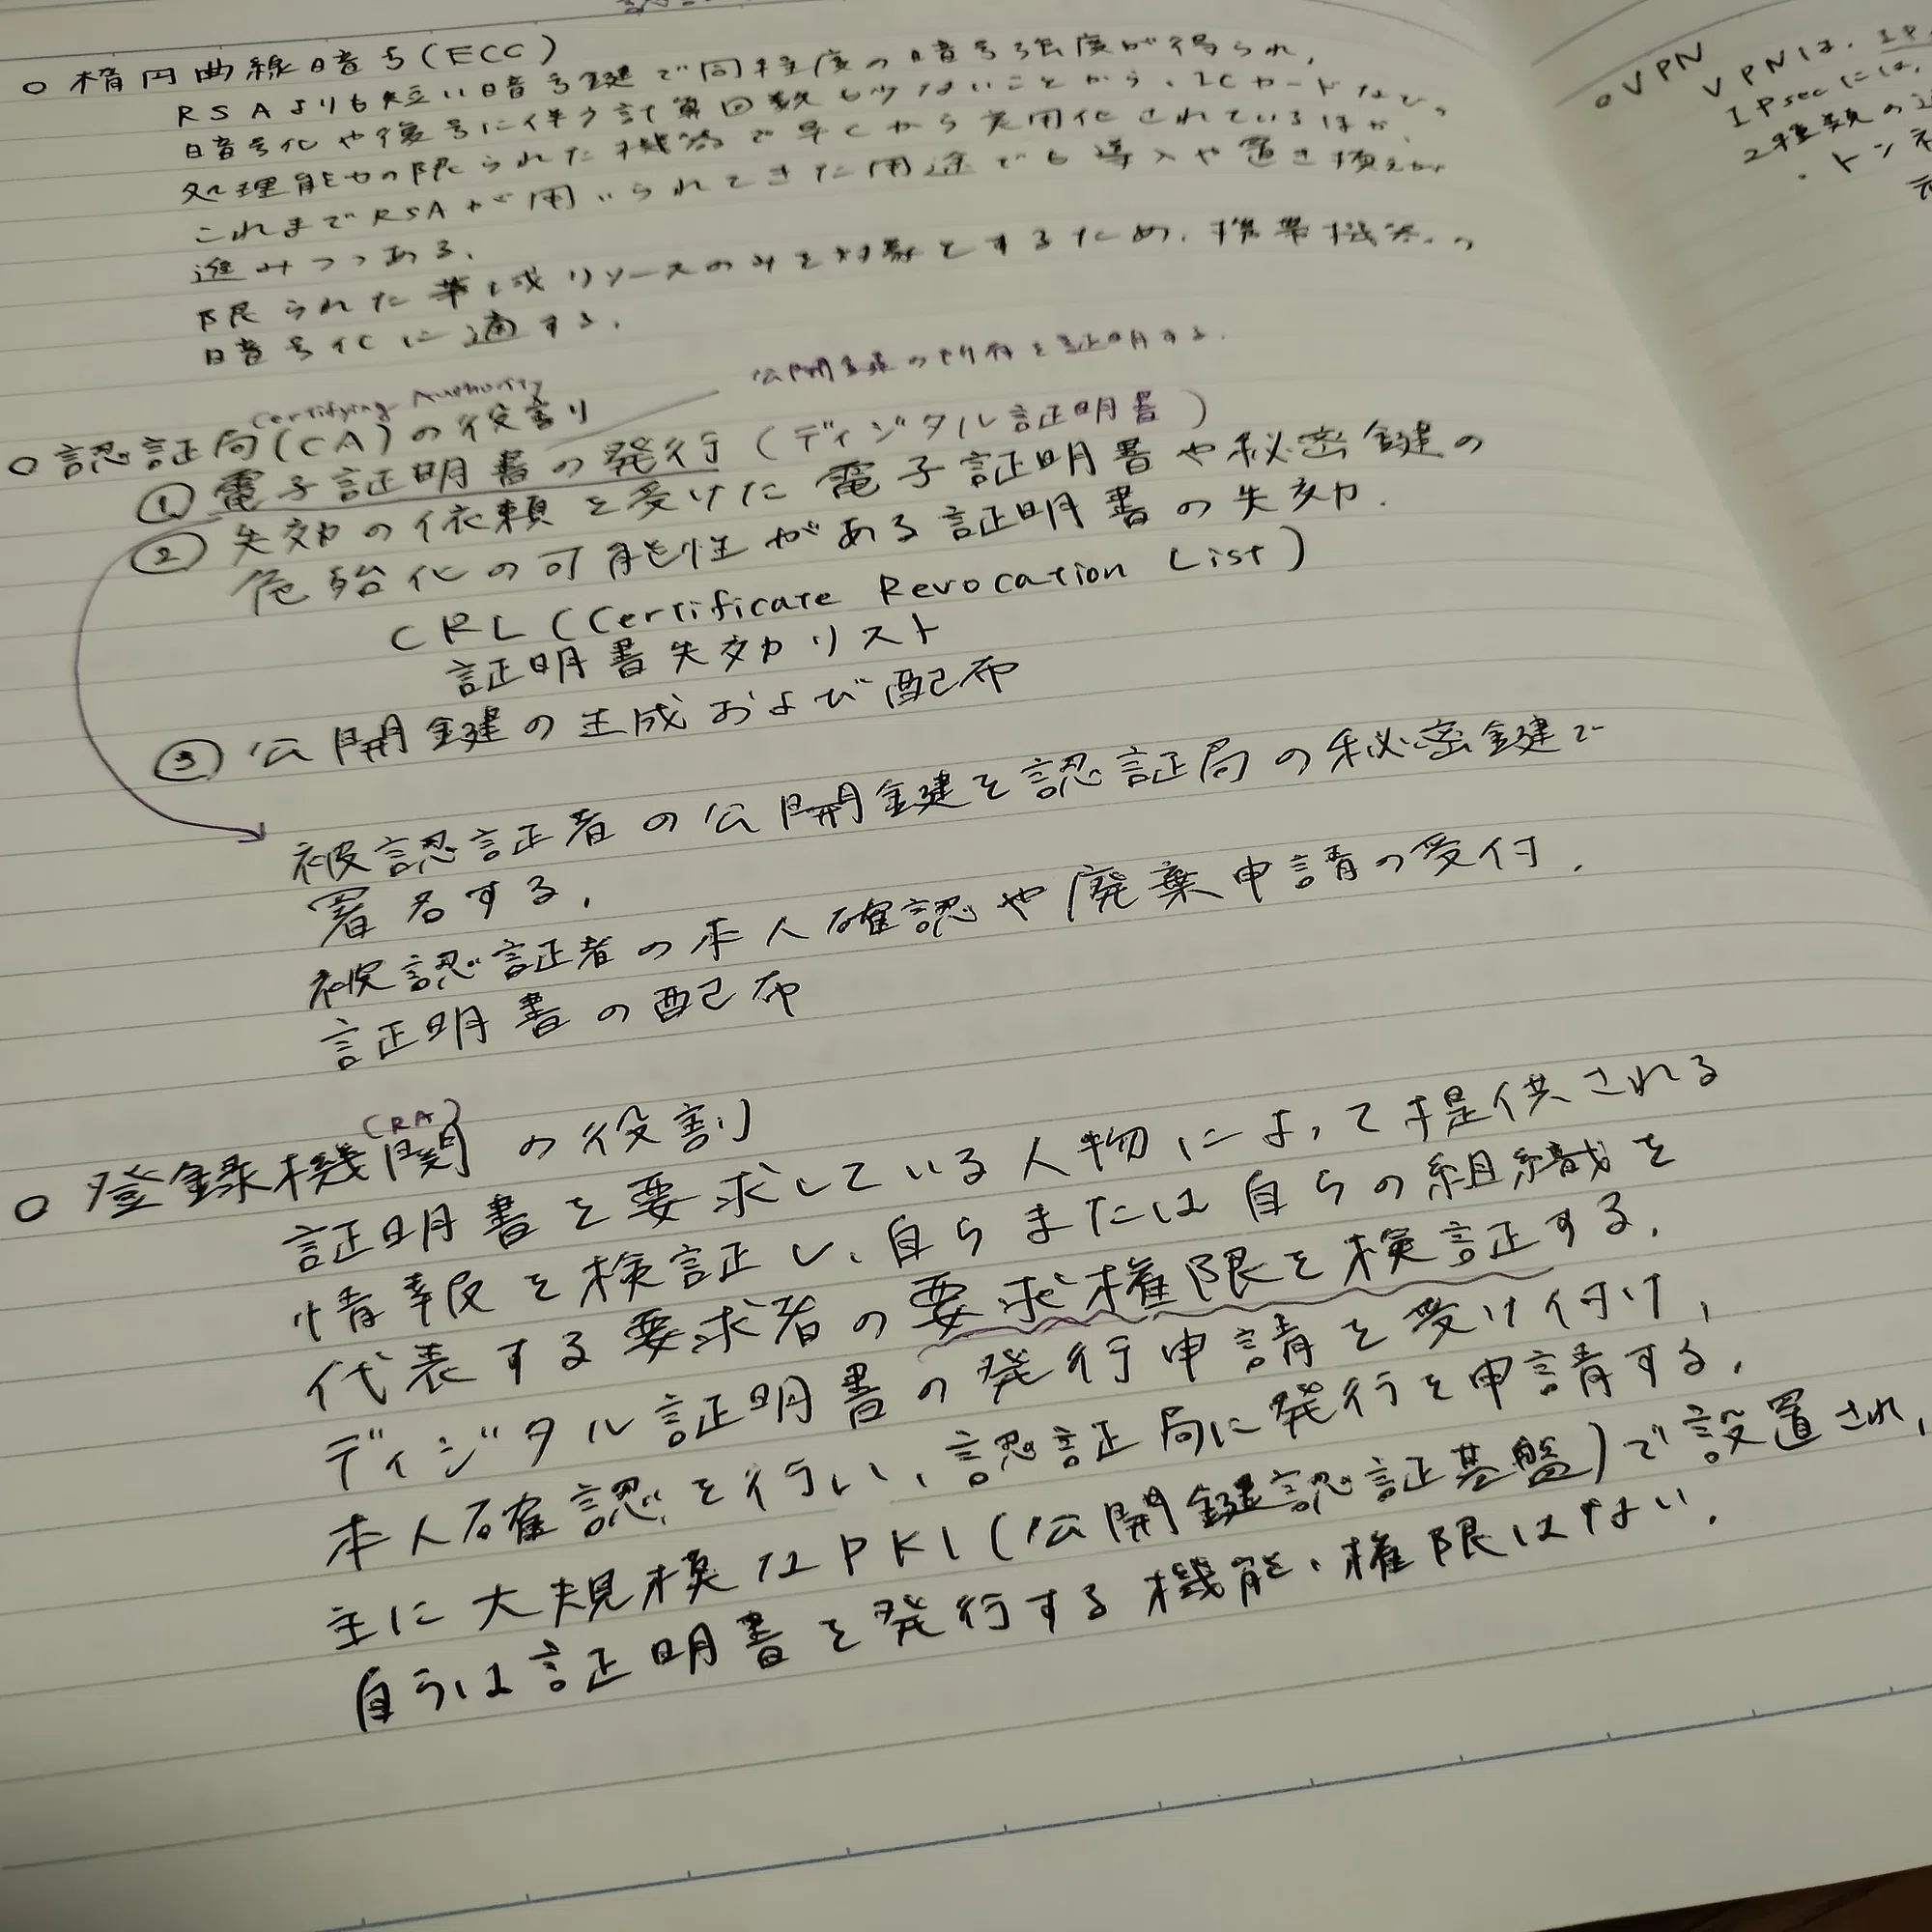 ○楕円曲線暗号(ECC)
RSAよりも短い暗号鍵で同程度の暗号強度が得られ,
暗号化や復号に伴う計算回数も少ないことから、ICカードなどの
処理能力の限られた機器で早くから実用化されているほか、
これまでRSAが用いられてきた用途でも導入や置き換えが
進みつつある.
限られた 成リソースのみを対象とするため,携帯機器の
暗号化に適する.
公開鍵の所有を証明する.
Certifying Authority
○認証局(CA)の役割り
①電子証明書の発行(ディジタル証明書)
②失効の依頼を受けた電子証明書や秘密鍵の
危殆化の可能性がある証明書の失効.
CRL(Certificate Revocation List)
証明書失効リスト
③公開鍵の生成および配布
被認証者の公開鍵を認証局の秘密鍵で
署名する.
被認証者の本人確認や廃棄申請の受付.
証明書の配布
(RA)
○登録機関の役割
証明書を要求している人物によって提供される
情報を検証し、自らまたは自らの組織を
代表する要求者の要求権限を検証する.
ディジタル証明書の発行申請を受け付け,
本人確認を行い、認証局に発行を申請する.
主に大規模なPKI(公開鍵認証基盤)で設置され,
自らは証明書を発行する機能、権限はない.
○VPN
VPNは、IP
IPsecには,
2種類の
・トンネ